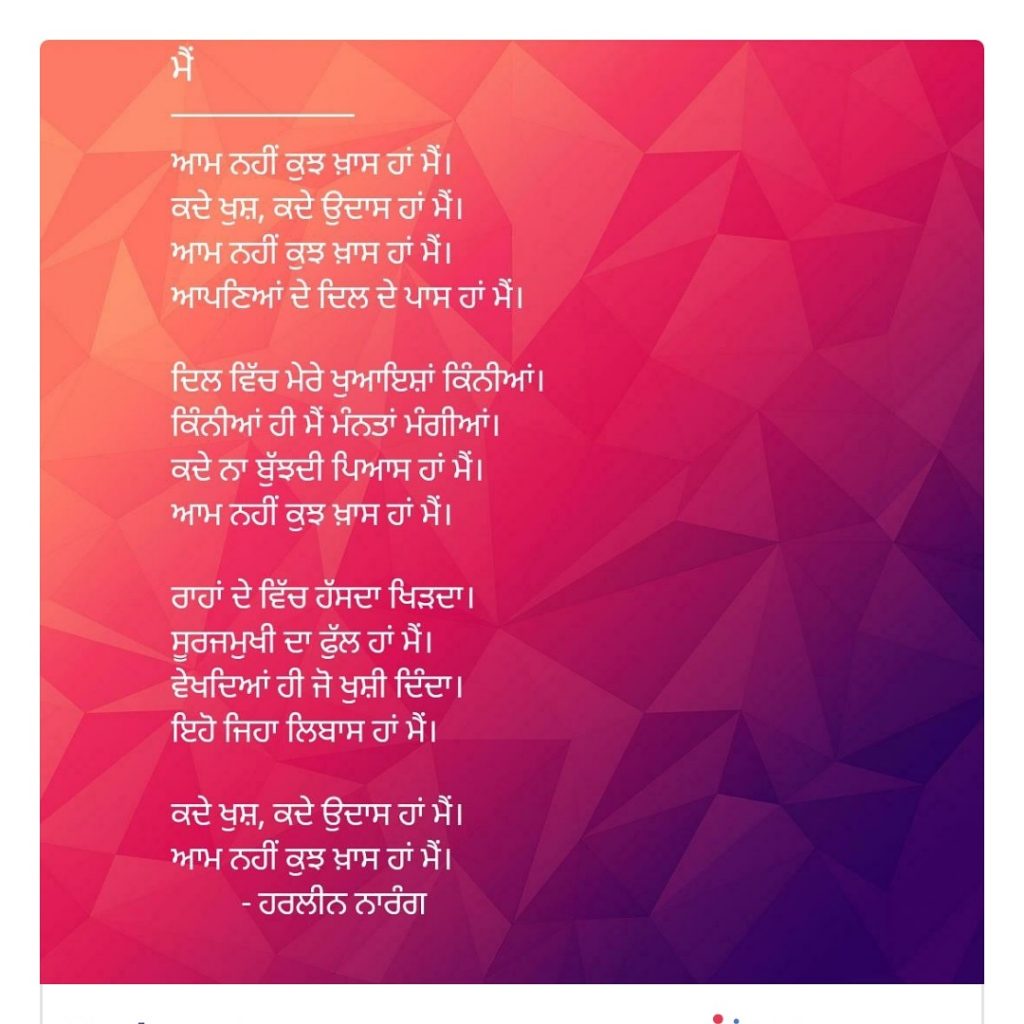 ਮੈਂ
ਆਮ ਨਹੀਂ ਕੁਝ ਖ਼ਾਸ ਹਾਂ ਮੈਂ।
ਕਦੇ ਖੁਸ਼, ਕਦੇ ਉਦਾਸ ਹਾਂ ਮੈਂ।
ਆਮ ਨਹੀਂ ਕੁਝ ਖ਼ਾਸ ਹਾਂ ਮੈਂ।
ਆਪਣਿਆਂ ਦੇ ਦਿਲ ਦੇ ਪਾਸ ਹਾਂ ਮੈਂ।
ਦਿਲ ਵਿੱਚ ਮੇਰੇ ਖੁਆਇਸ਼ਾਂ ਕਿੰਨੀਆਂ।
ਕਿੰਨੀਆਂ ਹੀ ਮੈਂ ਮੰਨਤਾਂ ਮੰਗੀਆਂ।
ਕਦੇ ਨਾ ਬੁੱਝਦੀ ਪਿਆਸ ਹਾਂ ਮੈਂ।
ਆਮ ਨਹੀਂ ਕੁਝ ਖ਼ਾਸ ਹਾਂ ਮੈਂ।
ਰਾਹਾਂ ਦੇ ਵਿੱਚ ਹੱਸਦਾ ਖਿੜਦਾ।
ਸੂਰਜਮੁਖੀ ਦਾ ਫੁੱਲ ਹਾਂ ਮੈਂ।
ਵੇਖਦਿਆਂ ਹੀ ਜੋ ਖੁਸ਼ੀ ਦਿੰਦਾ।
ਇਹੋ ਜਿਹਾ ਲਿਬਾਸ ਹਾਂ ਮੈਂ।
ਕਦੇ ਖੁਸ਼, ਕਦੇ ਉਦਾਸ ਹਾਂ ਮੈਂ।
ਆਮ ਨਹੀਂ ਕੁਝ ਖ਼ਾਸ ਹਾਂ ਮੈਂ।
- ਹਰਲੀਨ ਨਾਰੰਗ